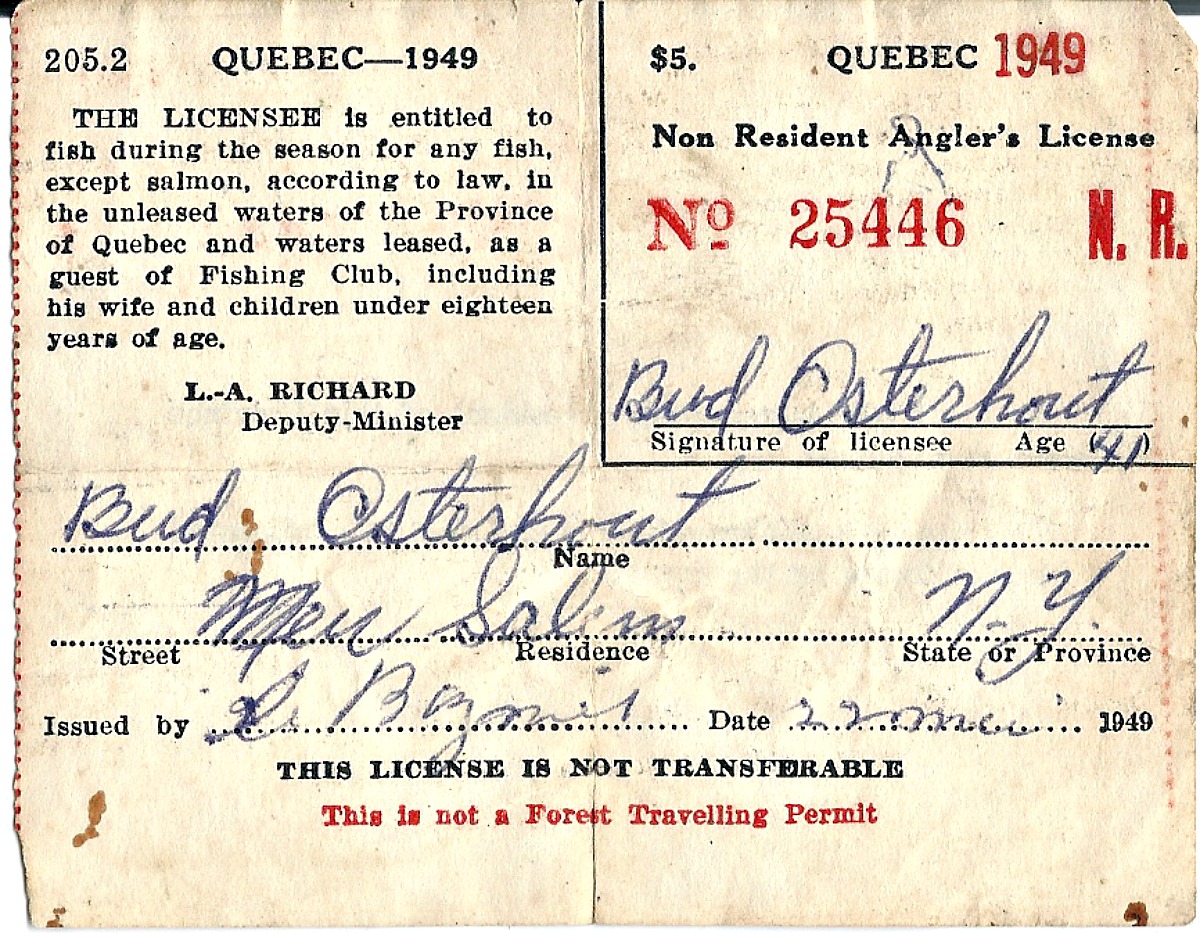 205.2 QUEBEC—1949
THE LICENSEE is entitled to
fish during the season for any fish,
except salmon, according to law, in
the unleased waters of the Province
of Quebec and waters leased, as a
guest of Fishing Club, including
his wife and children under eighteen
years of age.
L.-A. RICHARD
Deputy-Minister
$5. QUEBEC 1949
Non Resident Angler's License
Nº 25446 N. R.
Bud Osterhout
Signature of licensee Age (41)
Bud Osterhout
Name
Salem N.Y.
Street Residence State or Province
Issued by Date 22 1949
THIS LICENSE IS NOT TRANSFERABLE
This is not a Forest Travelling Permit